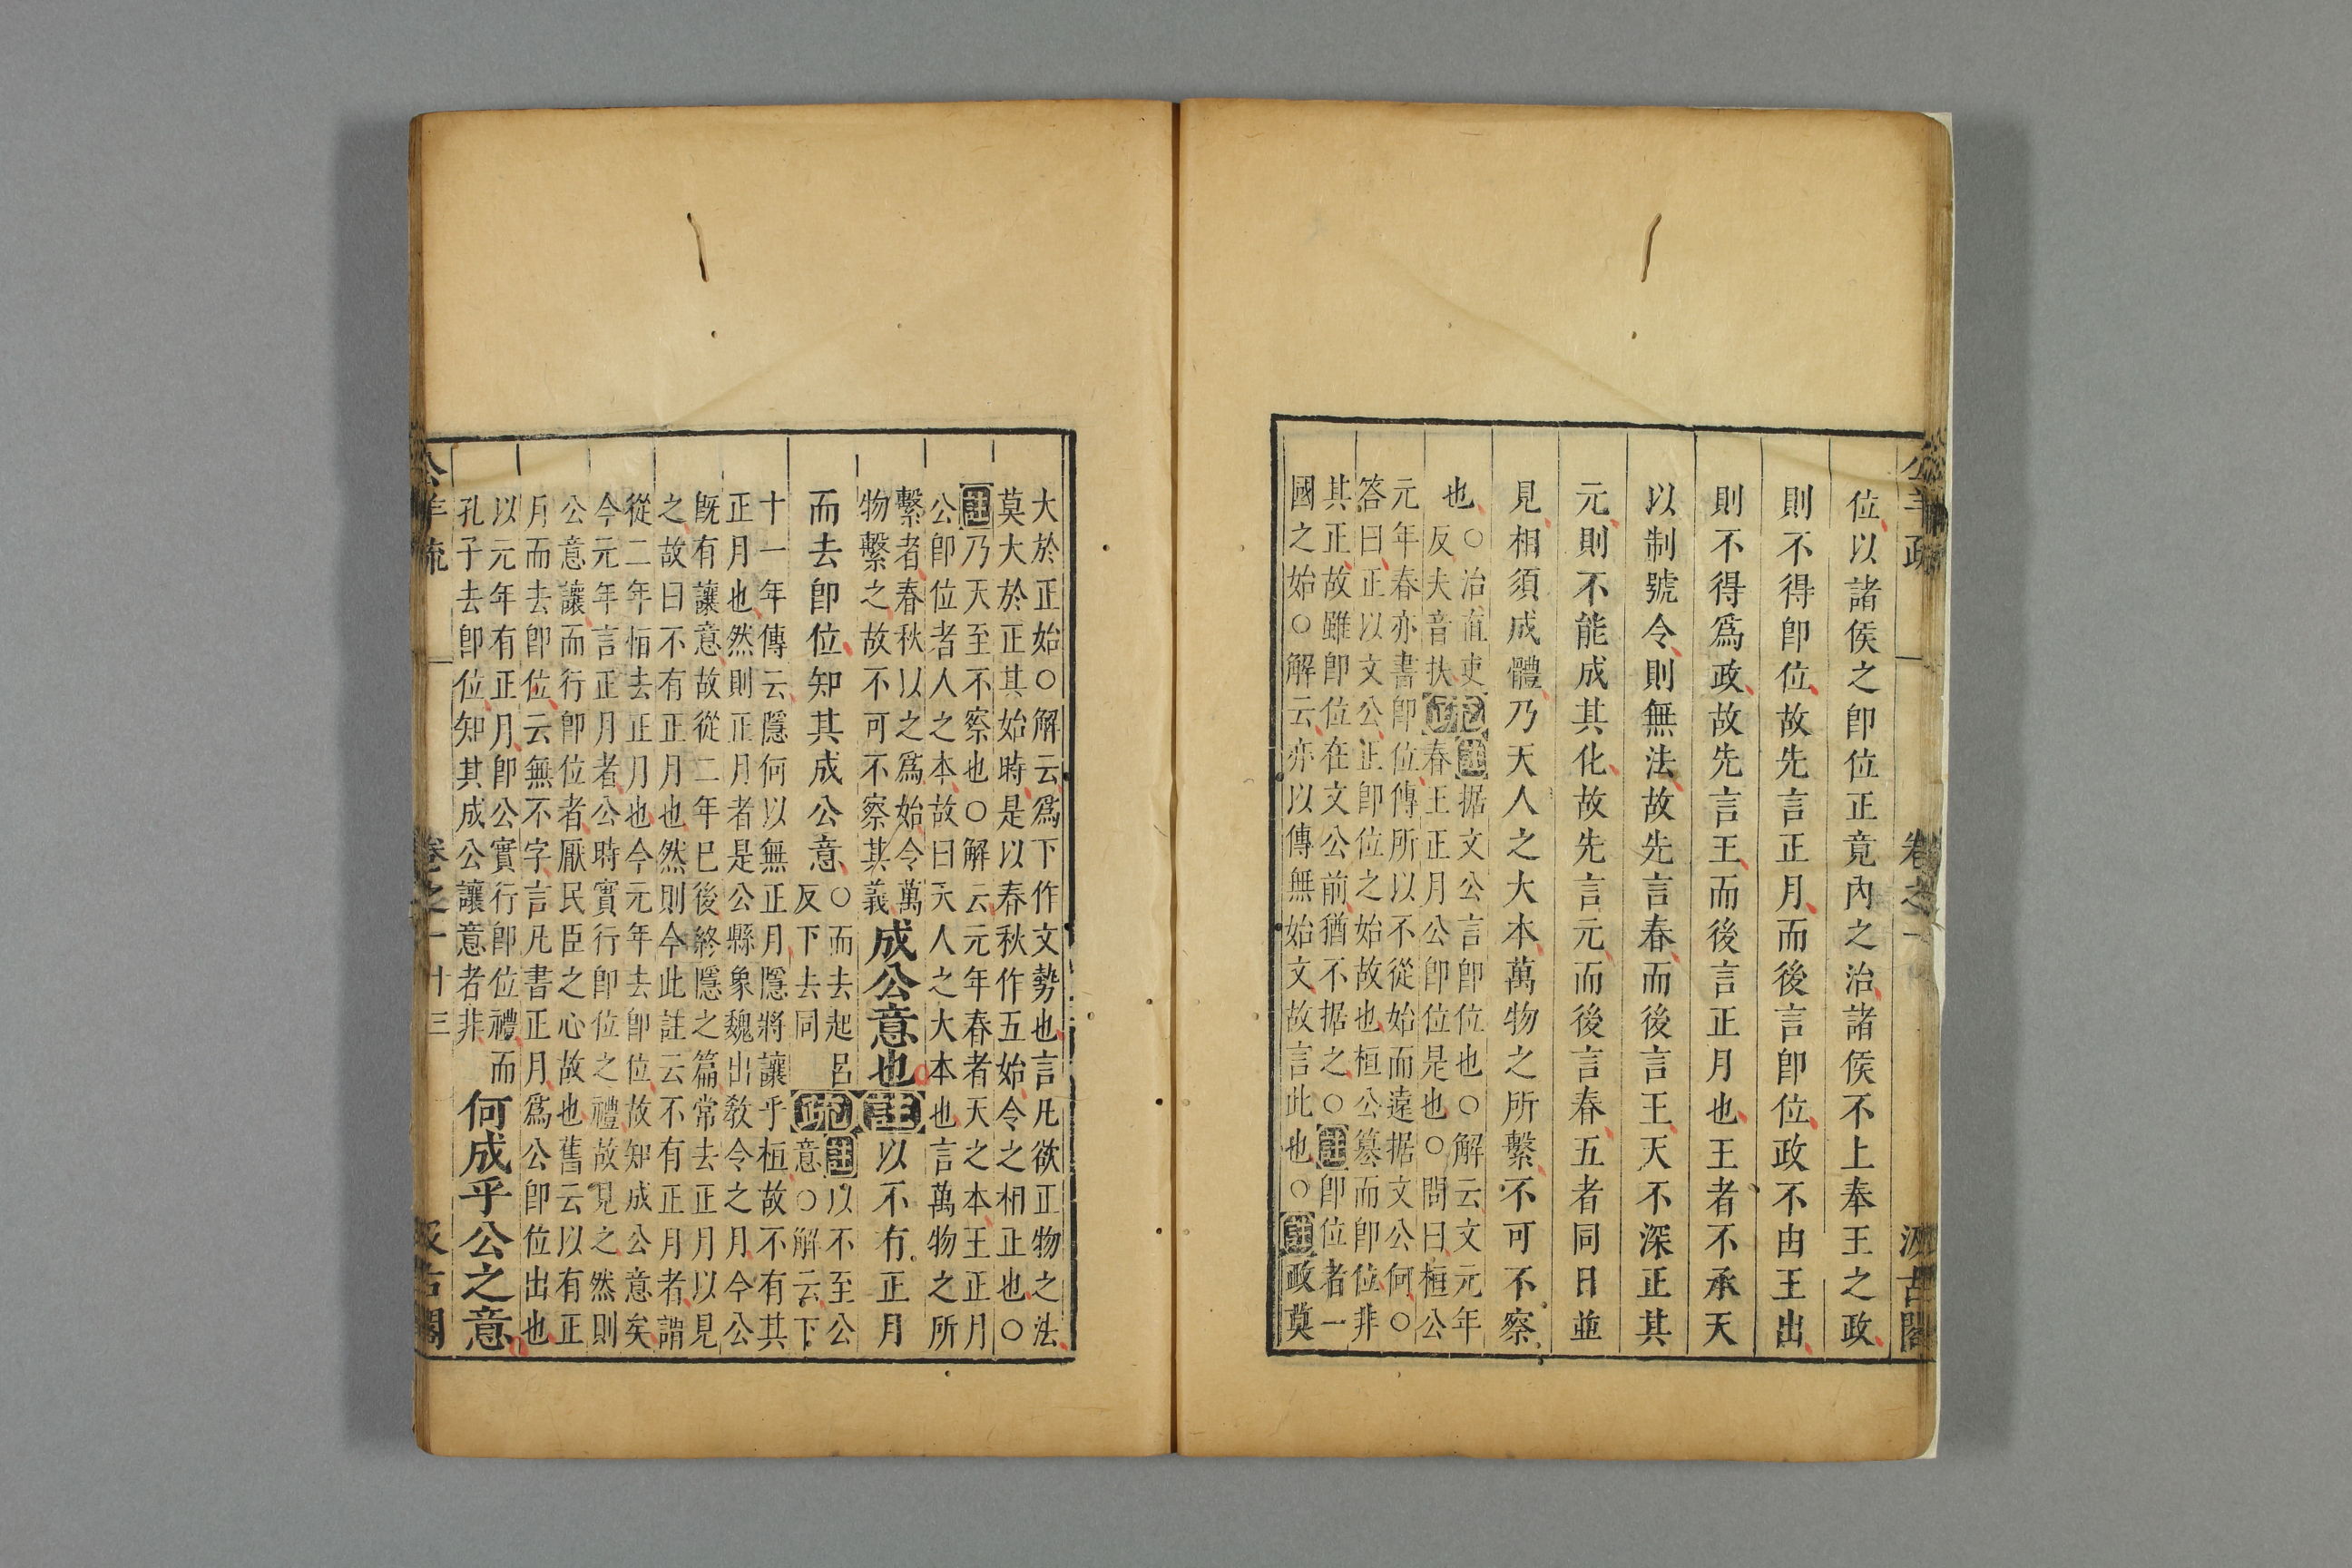 公羊疏 一 卷之一 汲古閣
位以諸侯之卽位正竟內之治諸侯不上奉王之政
則不得卽位故先言正月而後言卽位政不由王出
則不得爲政故先言王而後言正月也王者不承天
以制號令則無法故先言春而後言王天不深正其
元則不能成其化故先言元而後言春五者同日並
見相須成體乃天人之大本萬物之所繫不可不察
也
○治直吏
反夫音扶
疏
註据文公言卽位也○解云文元年
春王正月公卽位是也○問曰桓公
元年春亦書卽位傳所以不從始而遠据文公何○
答曰正以文公正卽位之始故也桓公篡而卽位非
其正故雖卽位在文公前猶不据之○註卽位者一
國之始○解云亦以傳無始文故言此也○註政莫
大於正始○解云爲下作文勢也言凡欲正物之法
莫大於正其始時是以春秋作五始令之相正也○
註乃天至不察也○解云元年春者天之本王正月
公卽位者人之本故曰天人之大本也言萬物之所
繫者春秋以之爲始令萬
物繫之故不可不察其義
成公意也
註以不有正月
而去卽位知其成公意
○而去起呂
反下去同
疏
註以不至公
意○解云下
十一年傳云隱何以無正月隱將讓乎桓故不有其
正月也然則正月者是公縣象魏出敎令之月今公
旣有讓意故從二年已後終隱之篇常去正月以見
之故曰不有正月也然則今此註云不有正月者謂
從二年䘚去正月也今元年去卽位故知成公意矣
今元年言正月者公時實行卽位之禮故見之然則
公意讓而行卽位者厭民臣之心故也舊云以有正
月而去卽位云無不字言凡書正月爲公卽位出也
以元年有正月卽公實行卽位禮而
孔子去卽位知其成公讓意者非
何成乎公之意
公羊疏 一 卷之一 十三 汲古閣